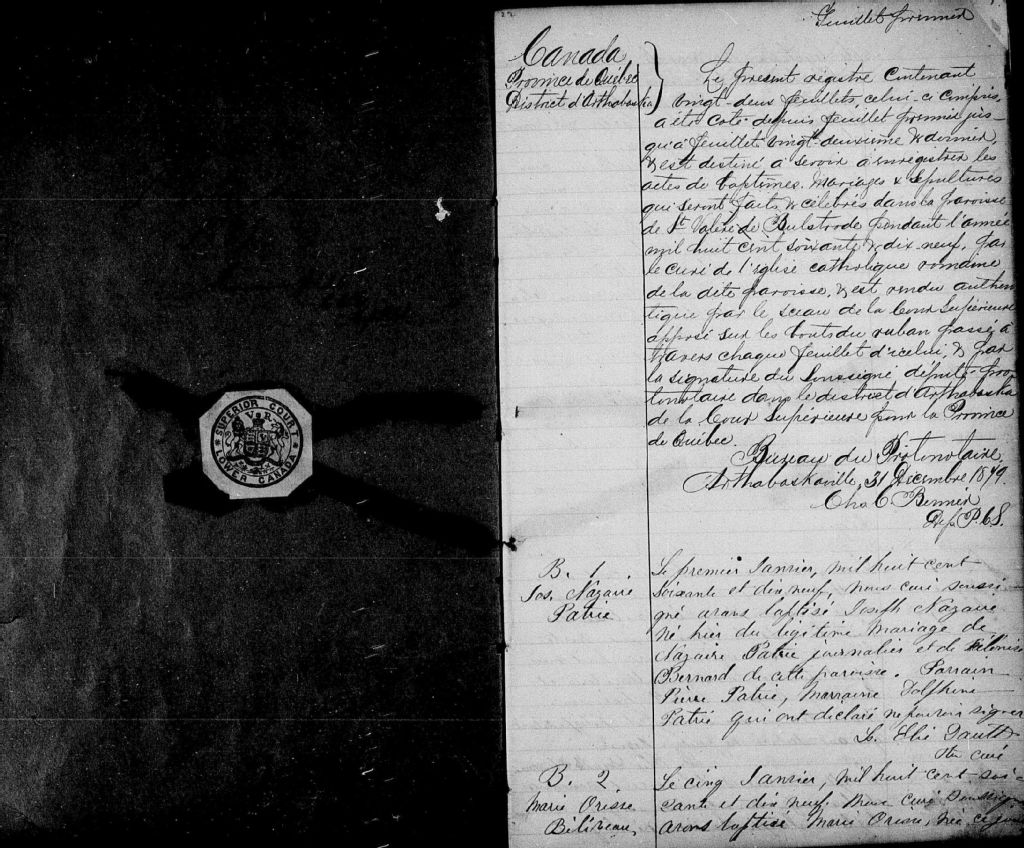 22
Feuillet premier
Canada
Province de Québec
District d'Arthabaska
Le présent régistre contenant
vingt-deux feuillets, celui-ci compris,
a été coté depuis feuillet premier jus-
qu'à feuillet vingt-deuxième & dernier,
& est destiné à servir à enregistrer les
actes de baptêmes, mariages & sépultures
qui seront faits & célébrés dans la paroisse
de St Valère de Bulstrode pendant l'année
mil huit cent soixante & dix-neuf, par
le curé de l'église catholique romaine
de la dite paroisse, & est rendu authen
tique par le sceau de la Cour Supérieure
apposé sur les bouts du ruban passé à
travers chaque feuillet d'icelui, & par
la signature du soussigné député-pro-
tonotaire dans le district d'Arthabaska
de la Cour Supérieure pour la Province
de Québec.
Bureau du Protonotaire
Arthabaskaville, 31 Décembre 1879.
Chs C. Bernier
Dep. P. C. S.
SUPERIOR COURT
V R
LOWER CANADA
B. 1
Jos. Nazaire
Patrie
Le premier Janvier, mil huit cent
soixante et dix neuf, nous curé soussi-
gné avons baptisé Joseph Nazaire
né hier du légitime mariage de
Nazaire Patrie journalier et de
Bernard de cette paroisse. Parrain
Pierre Patrie, Marraine Dolphine
Patrie qui ont déclaré ne pouvoir signer
Elie
Ptre curé
B. 2.
Marie Orisse
Béliveau,
Le cinq Janvier, mil huit cent soi-
xante et dix neuf, nous curé soussigné
avons baptisé Marie Orisse, née ce jour